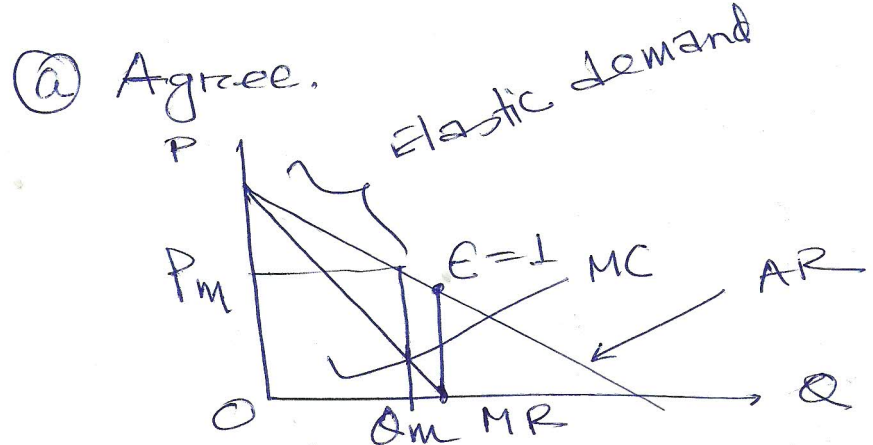 ⓐ Agree.
Elastic demand
P
Pm
ϵ=1
MC
AR
O
Qm
MR
Q